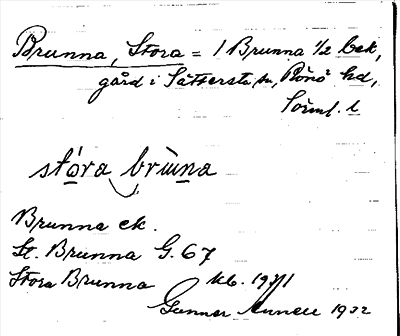 Brunna, Stora = 1 Brunna 1/2 bek,
gård i Sättersta sn, Rönö hd,
Sörml. l
stóra brùna
Brunna ek.
St. Brunna G. 67
Stora Brunna
Gunnar 1932